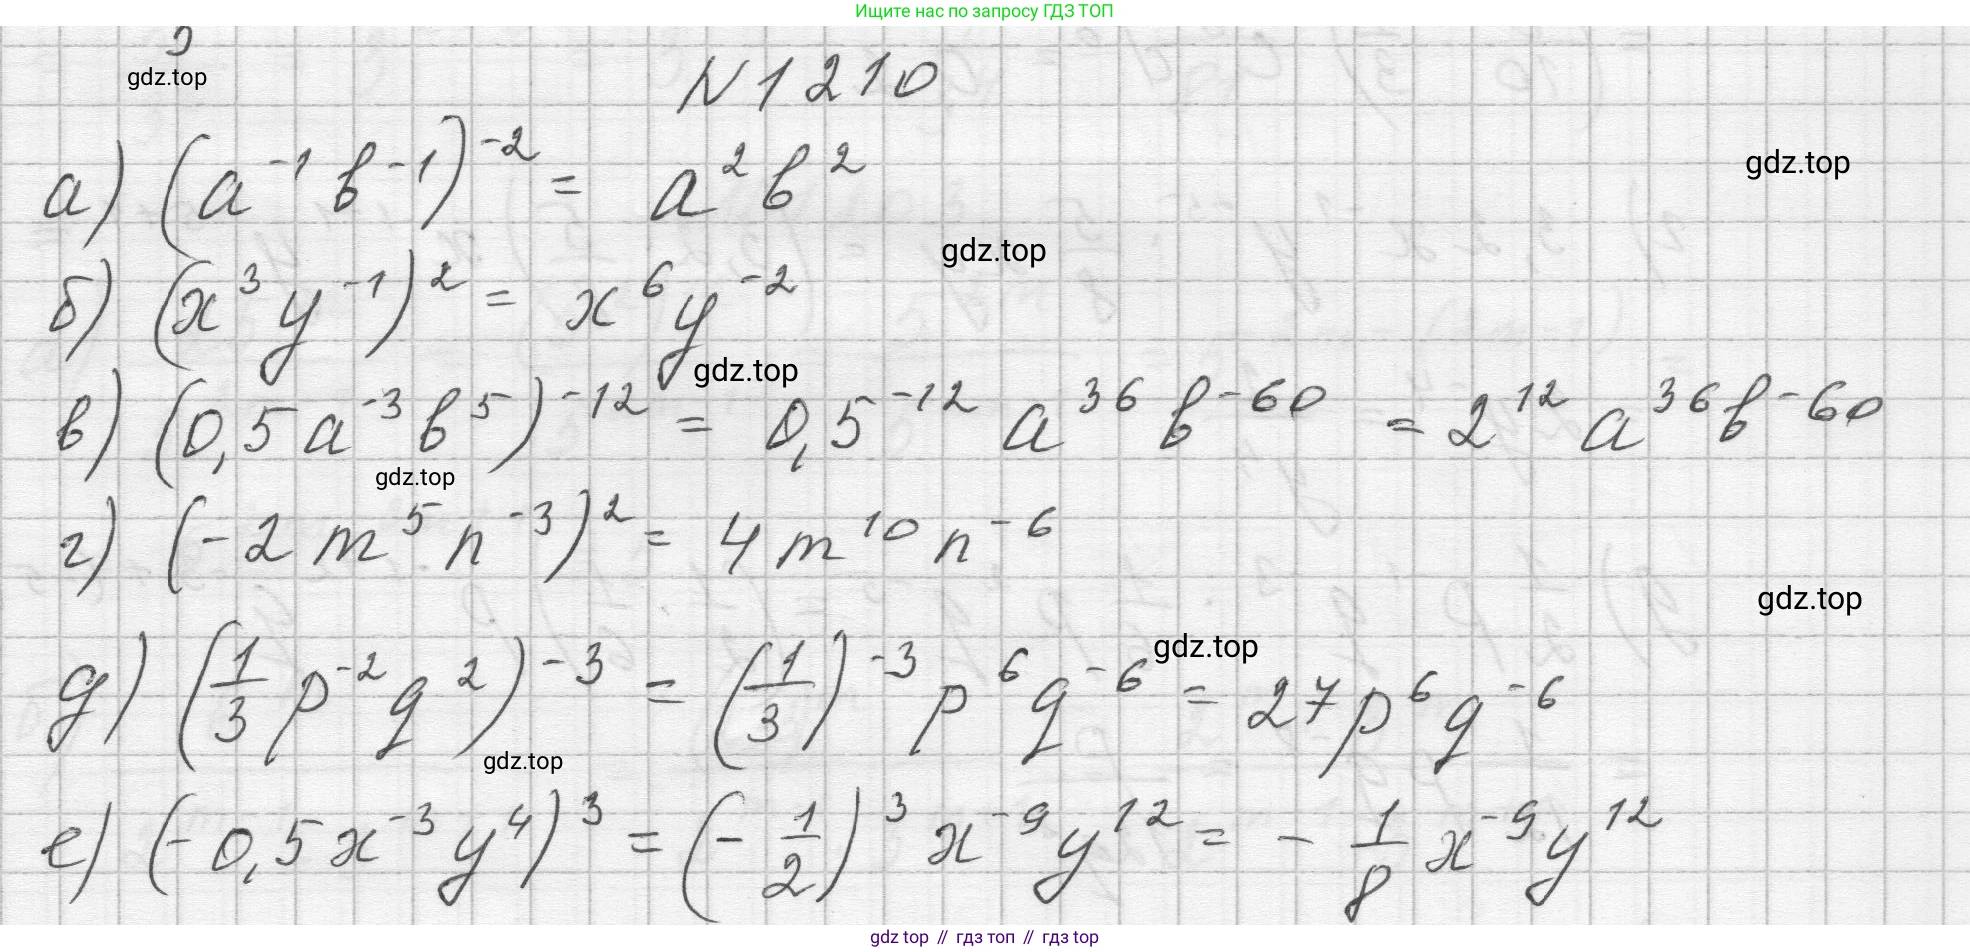 Ищите нас по запросу ГДЗ ТОП
gdz.top
N1210
а) (a⁻¹ b⁻¹)⁻² = a² b²
gdz.top
gdz.top
б) (x³ y⁻¹)² = x⁶ y⁻²
gdz.top
в) (0,5 a⁻³ b⁵)⁻¹² = 0,5⁻¹² a³⁶ b⁻⁶⁰ = 2¹² a³⁶ b⁻⁶⁰
gdz.top
г) (-2 m⁵ n⁻³)² = 4 m¹⁰ n⁻⁶
gdz.top
gdz.top
д) (1/3 p⁻² q²)⁻³ = (1/3)⁻³ p⁶ q⁻⁶ = 27 p⁶ q⁻⁶
gdz.top
е) (-0,5 x⁻³ y⁴)³ = (-1/2)³ x⁻⁹ y¹² = -1/8 x⁻⁹ y¹²
gdz top // гдз топ // гдз top